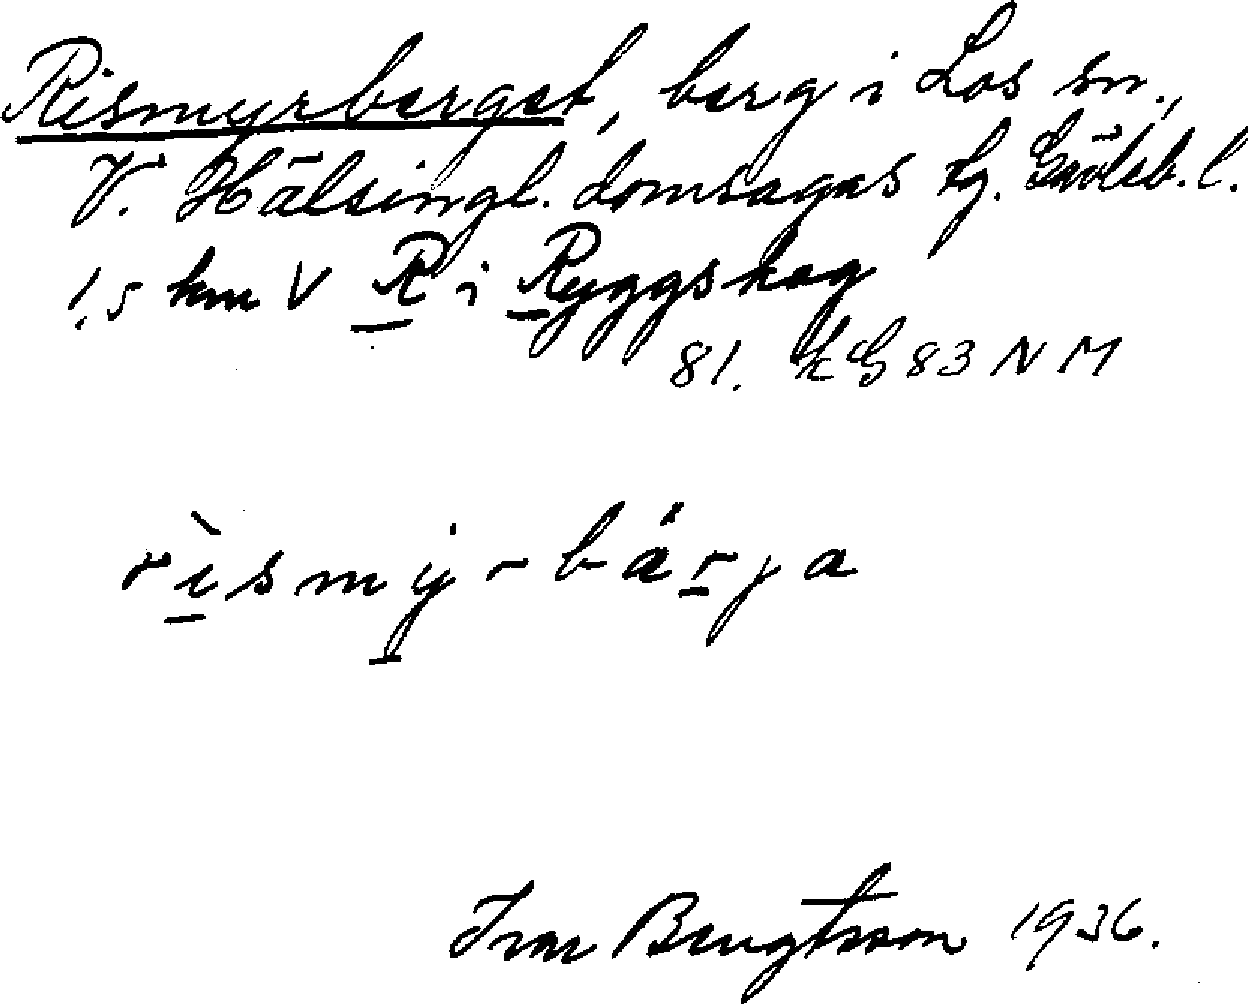 Rismyrberget, berg i Los sn.,
V. Hälsingl. domsagas tg. Gävleb. l.
1,5 km V R i Ryggskog
81. EG 83 NM
rìsmyrbärja
Ivar Bengtsson 1936.